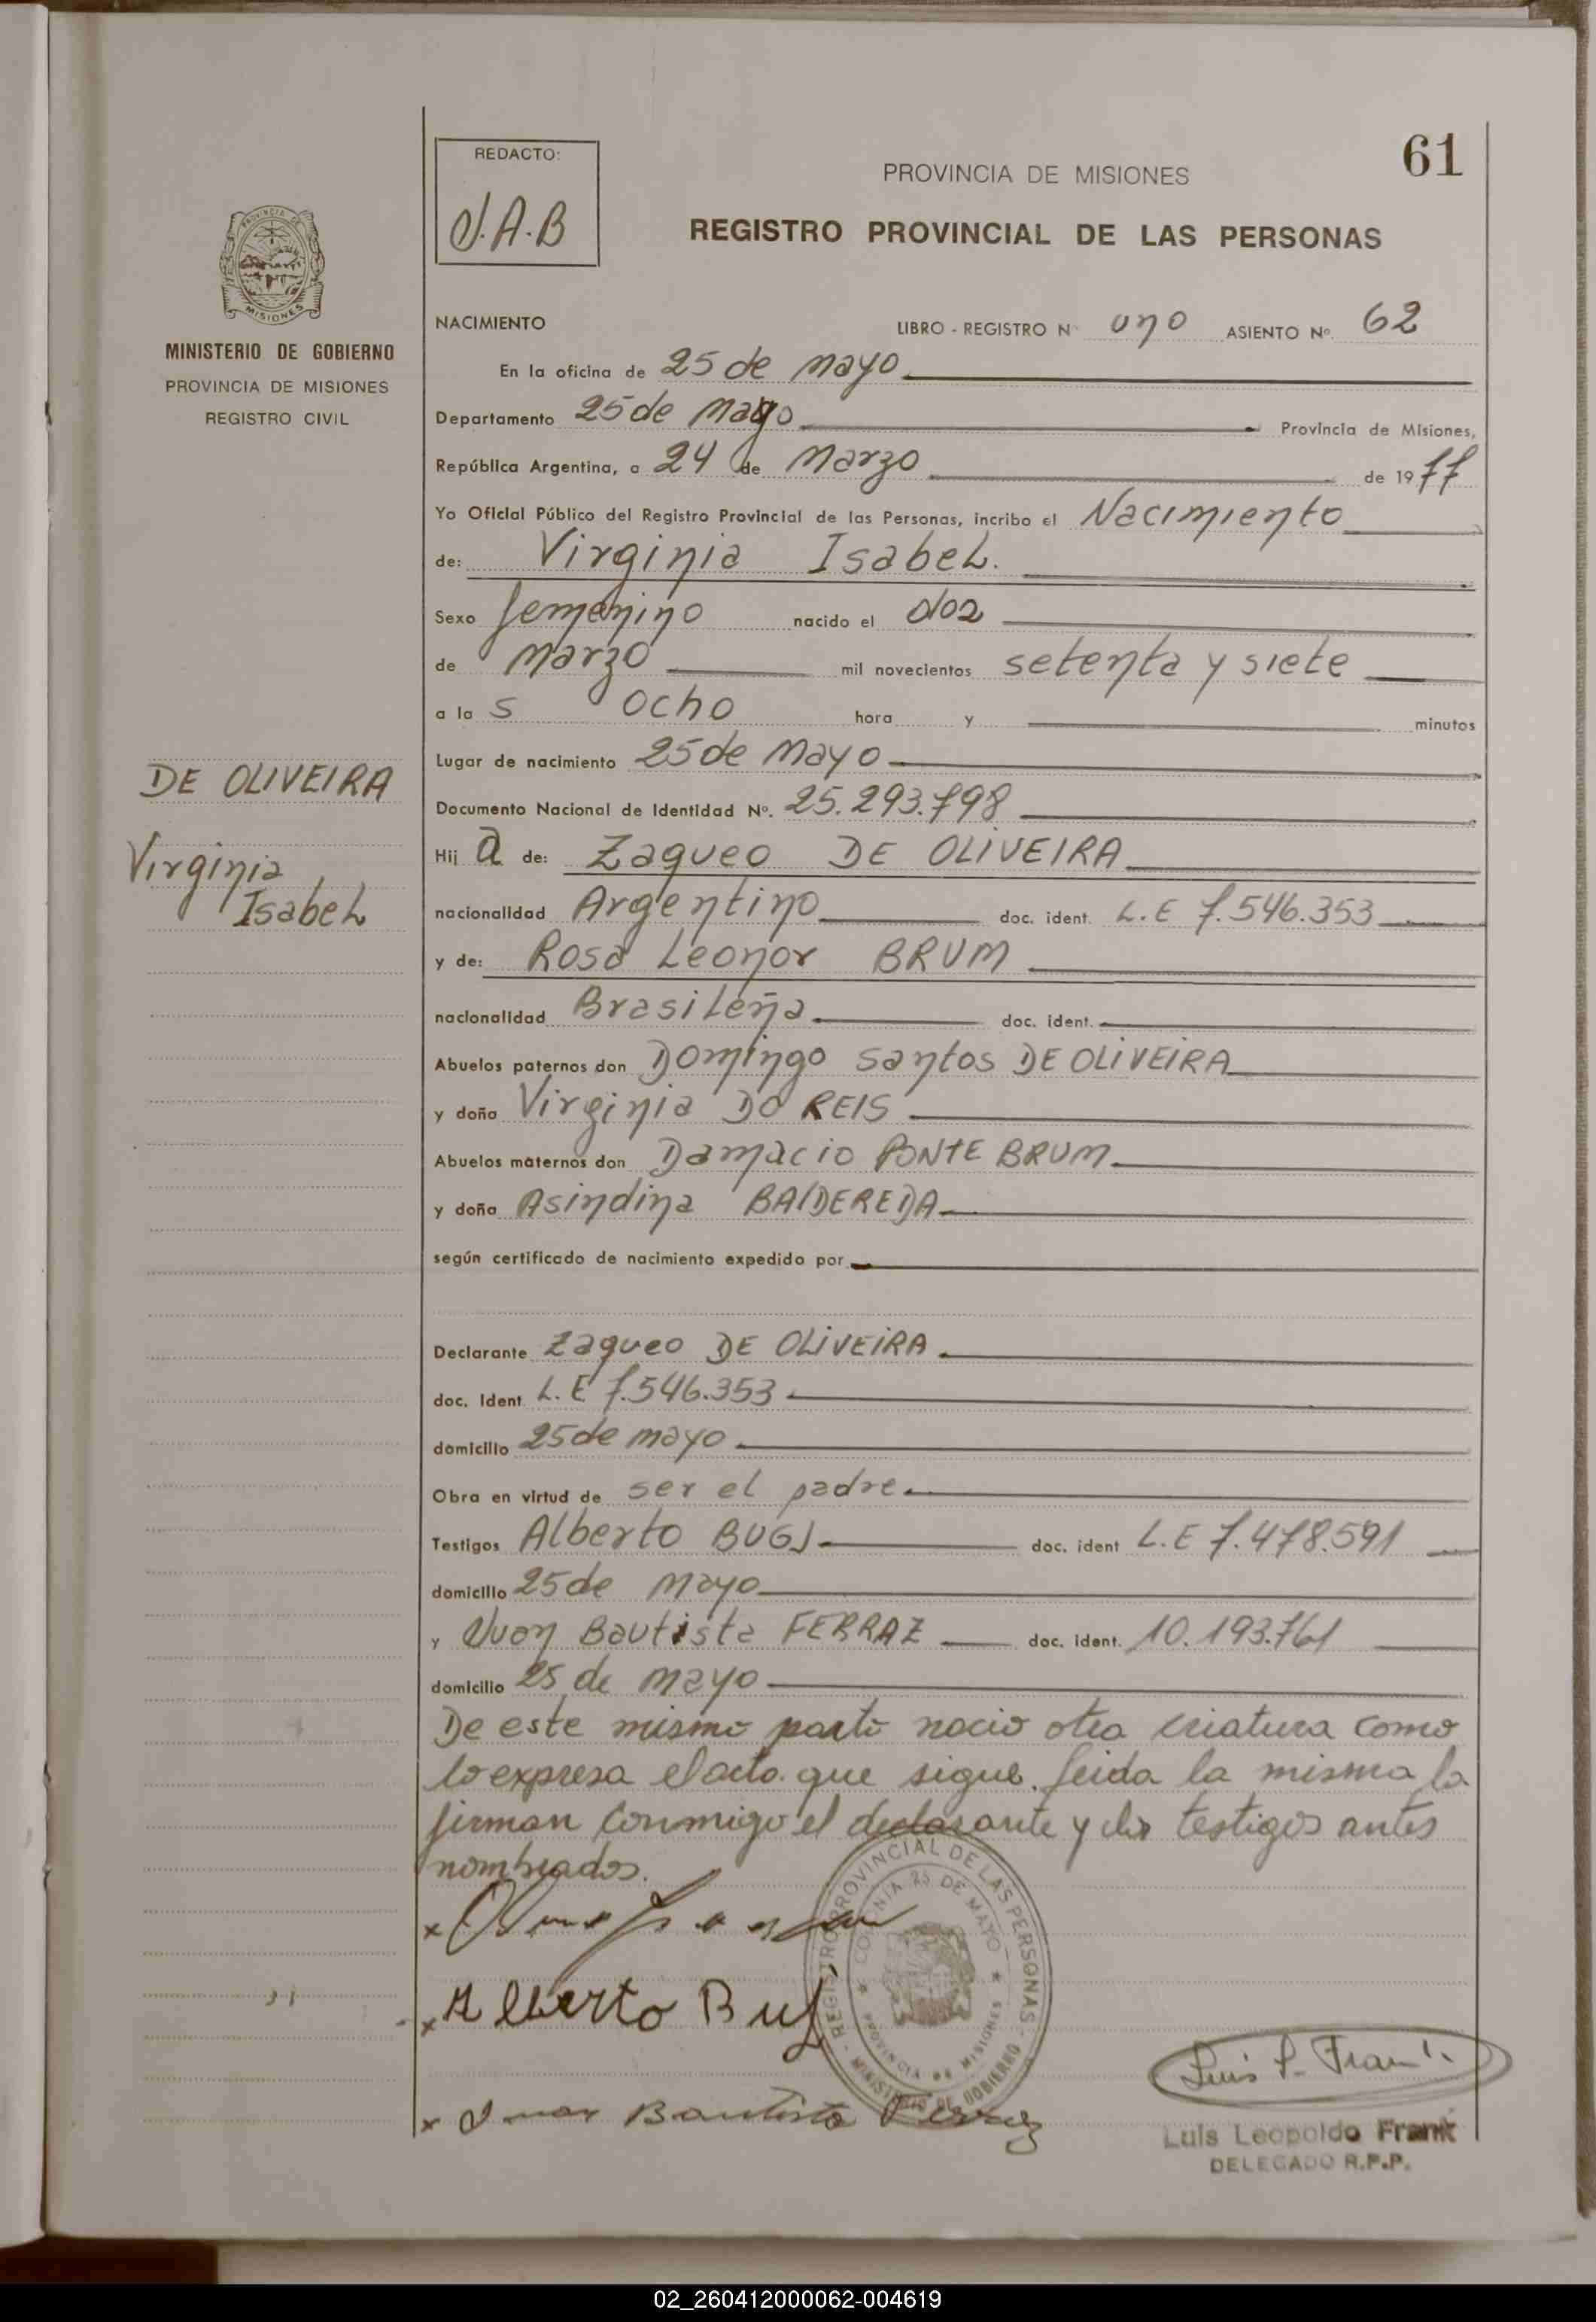 61
REDACTO:
J.A.B
PROVINCIA DE MISIONES
REGISTRO PROVINCIAL DE LAS PERSONAS
PROVINCIA DE
MISIONES
MINISTERIO DE GOBIERNO
PROVINCIA DE MISIONES
REGISTRO CIVIL
NACIMIENTO LIBRO - REGISTRO Nº uno ASIENTO Nº. 62
En la oficina de 25 de mayo
Departamento 25 de Mayo Provincia de Misiones,
República Argentina, a 24 de Marzo de 1977
Yo Oficial Público del Registro Provincial de las Personas, incribo el Nacimiento
de: Virginia Isabel.
Sexo femenino nacido el dos
de marzo mil novecientos setenta y siete
a las ocho hora y minutos
Lugar de nacimiento 25 de Mayo
DE OLIVEIRA
Virginia
Isabel
Documento Nacional de Identidad Nº. 25.293.798
Hija de: Zaqueo DE OLIVEIRA
nacionalidad Argentino doc. ident. L.E 7.546.353
y de: Rosa Leonor BRUM
nacionalidad Brasileña doc. ident.
Abuelos paternos don Domingo Santos DE OLIVEIRA
y doña Virginia DO REIS
Abuelos maternos don Damacio PONTE BRUM
y doña Asindina BALDEREDA
según certificado de nacimiento expedido por
Declarante Zaqueo DE OLIVEIRA
doc. Ident. L.E 7.546.353
domicilio 25 de mayo
Obra en virtud de ser el padre.
Testigos Alberto BUGS doc. ident L.E 7.478.591
domicilio 25 de Mayo
y Juan Bautista FERRAZ doc. ident. 10.193.761
domicilio 25 de Mayo
De este mismo parto nacio otra criatura como
lo expresa el acta que sigue. Leida la misma la
firman conmigo el declarante y los testigos antes
nombrados.
REGISTRO PROVINCIAL DE LAS PERSONAS - MINISTERIO DE GOBIERNO -
COLONIA 25 DE MAYO
PROVINCIA DE MISIONES
x
x Alberto Bugs
x Juan Bautista Ferraz
Luis L. Frank
Luis Leopoldo Frank
DELEGADO R.P.P.
02_260412000062-004619